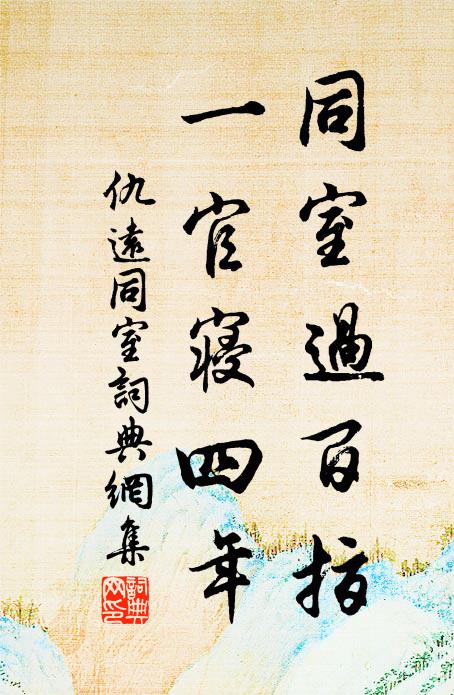 同室過百指
一官寑四年
仇遠同室詞典網集